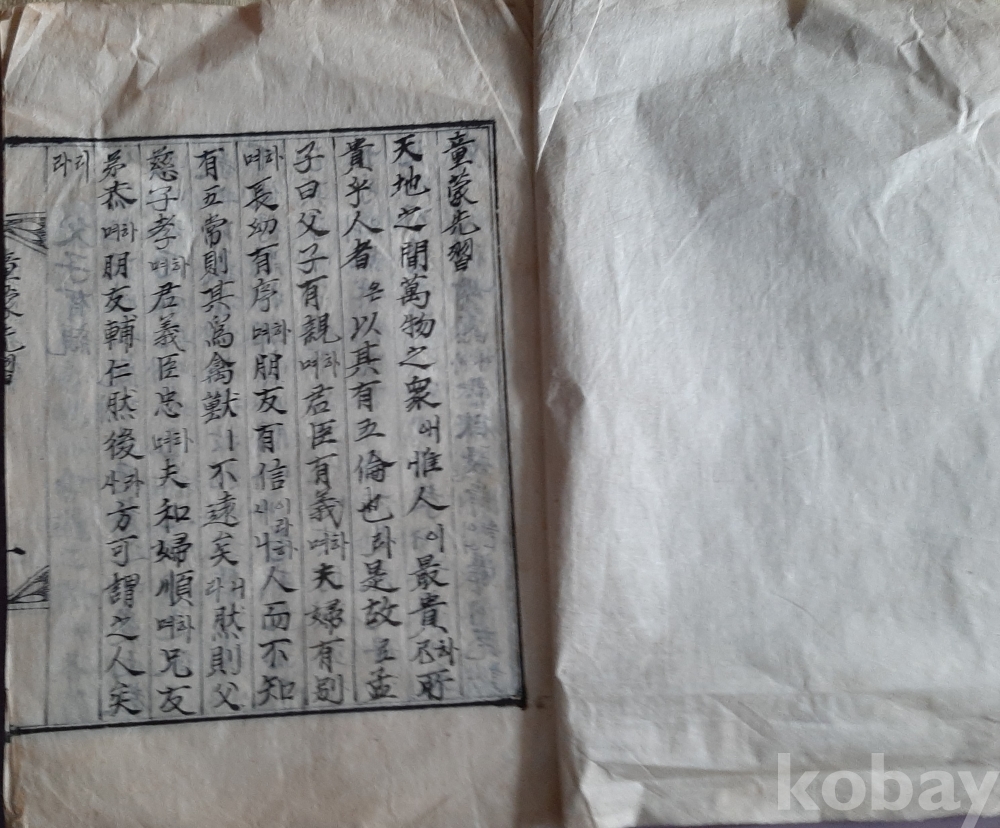 童蒙先習
天地之間萬物之衆애惟人이最貴하니所
貴乎人者은以其有五倫也라是故로孟
子曰父子有親하며君臣有義하며夫婦有別
하며長幼有序하며朋友有信이라하시니人而不知
有五常則其爲禽獸ㅣ不遠矣니라然則父
慈子孝하며君義臣忠하며夫和婦順하며兄友
弟恭하며朋友輔仁然後사라方可謂之人矣
리라
童蒙先習
一
kobay